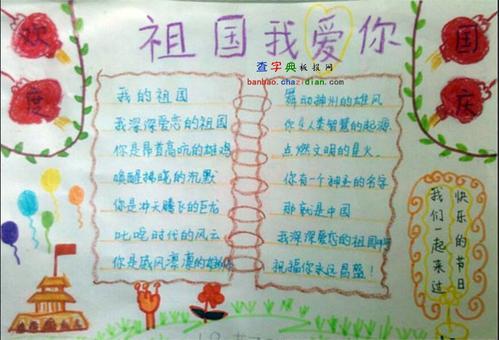 欢度
国庆
祖国我爱你
查字典板报网
banbao.chazidian.com
我的祖国
我深深爱恋的祖国
你是昂首高吭的雄鸡
唤醒拂晓的沉默
你是冲天腾飞的巨龙
叱咤时代的风云
你是威风凛凛的
舞动神州的雄风
你是人类智慧的起源
点燃文明的星火
你有一个神圣的名字
那就是中国
我深深爱恋的祖国啊
祝福你永远昌盛！
快乐的节日
我们一起来过